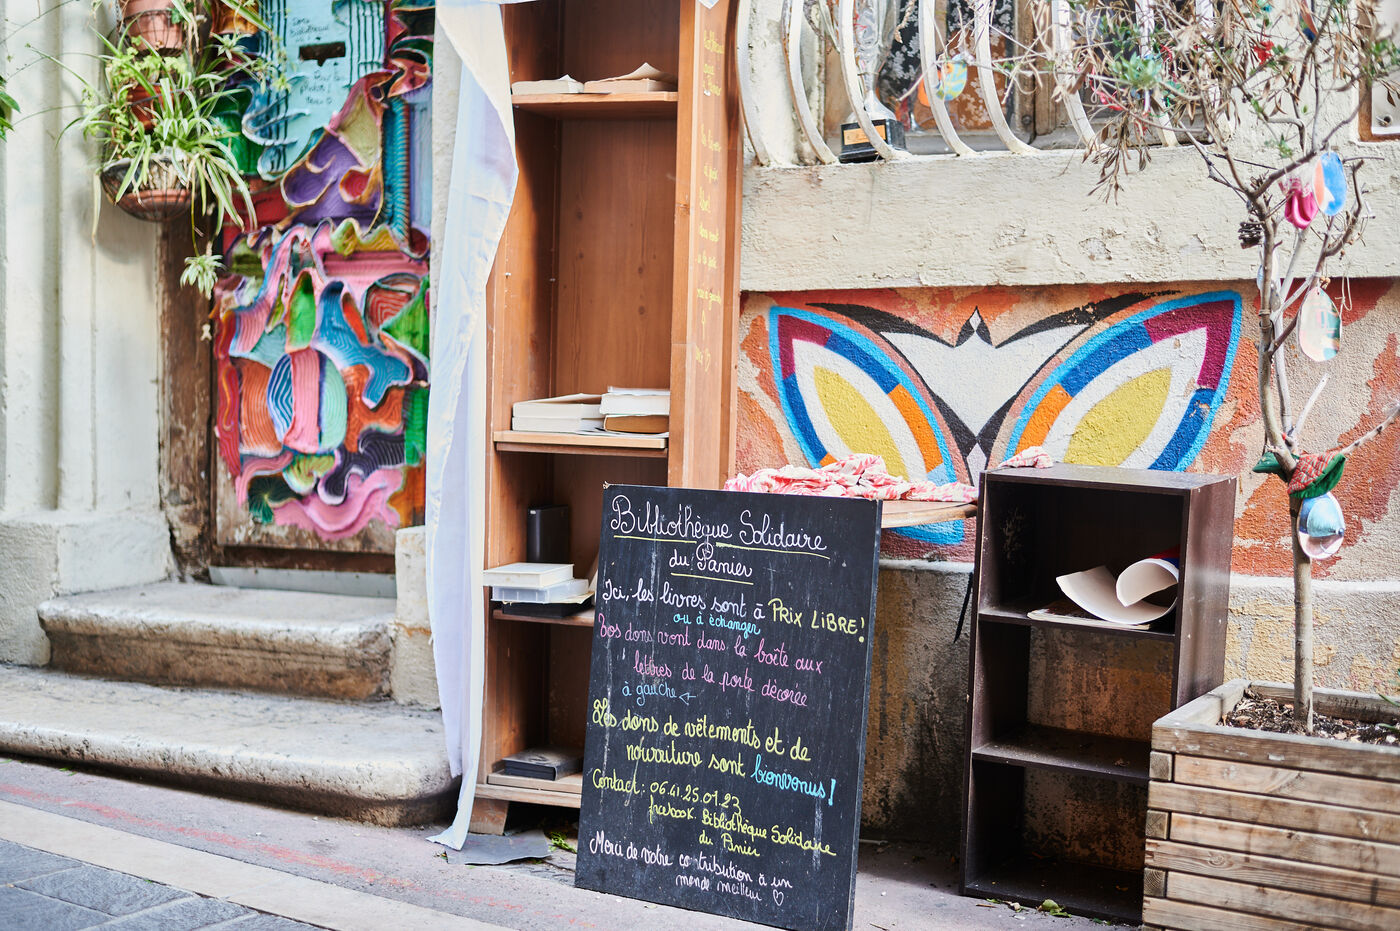 Bibliothèque Solidaire
du Panier
Ici, les livres sont à PRIX LIBRE!
ou à échanger
Vos dons vont dans la boîte aux
lettres de la porte décorée
à gauche ←
Les dons de vêtements et de
nourriture sont bienvenus!
Contact: 06.41.25.01.23
facebook Bibliothèque Solidaire
du Panier
Merci de votre contribution à un
monde meilleur ♡